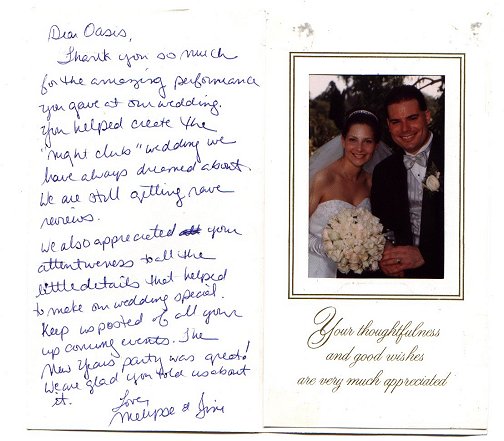 Dear Oasis,
Thank you so much
for the amazing performance
you gave at our wedding.
You helped create the
"night club" wedding we
have always dreamed about.
We are still getting rave
reviews.
We also appreciated your
attentiveness to all the
little details that helped
to make our wedding special.
Keep us posted of all your
up coming events. The
New Years party was great!
We are glad you told us about
it.
Love,
Melissa & Jim
Your thoughtfulness
and good wishes
are very much appreciated